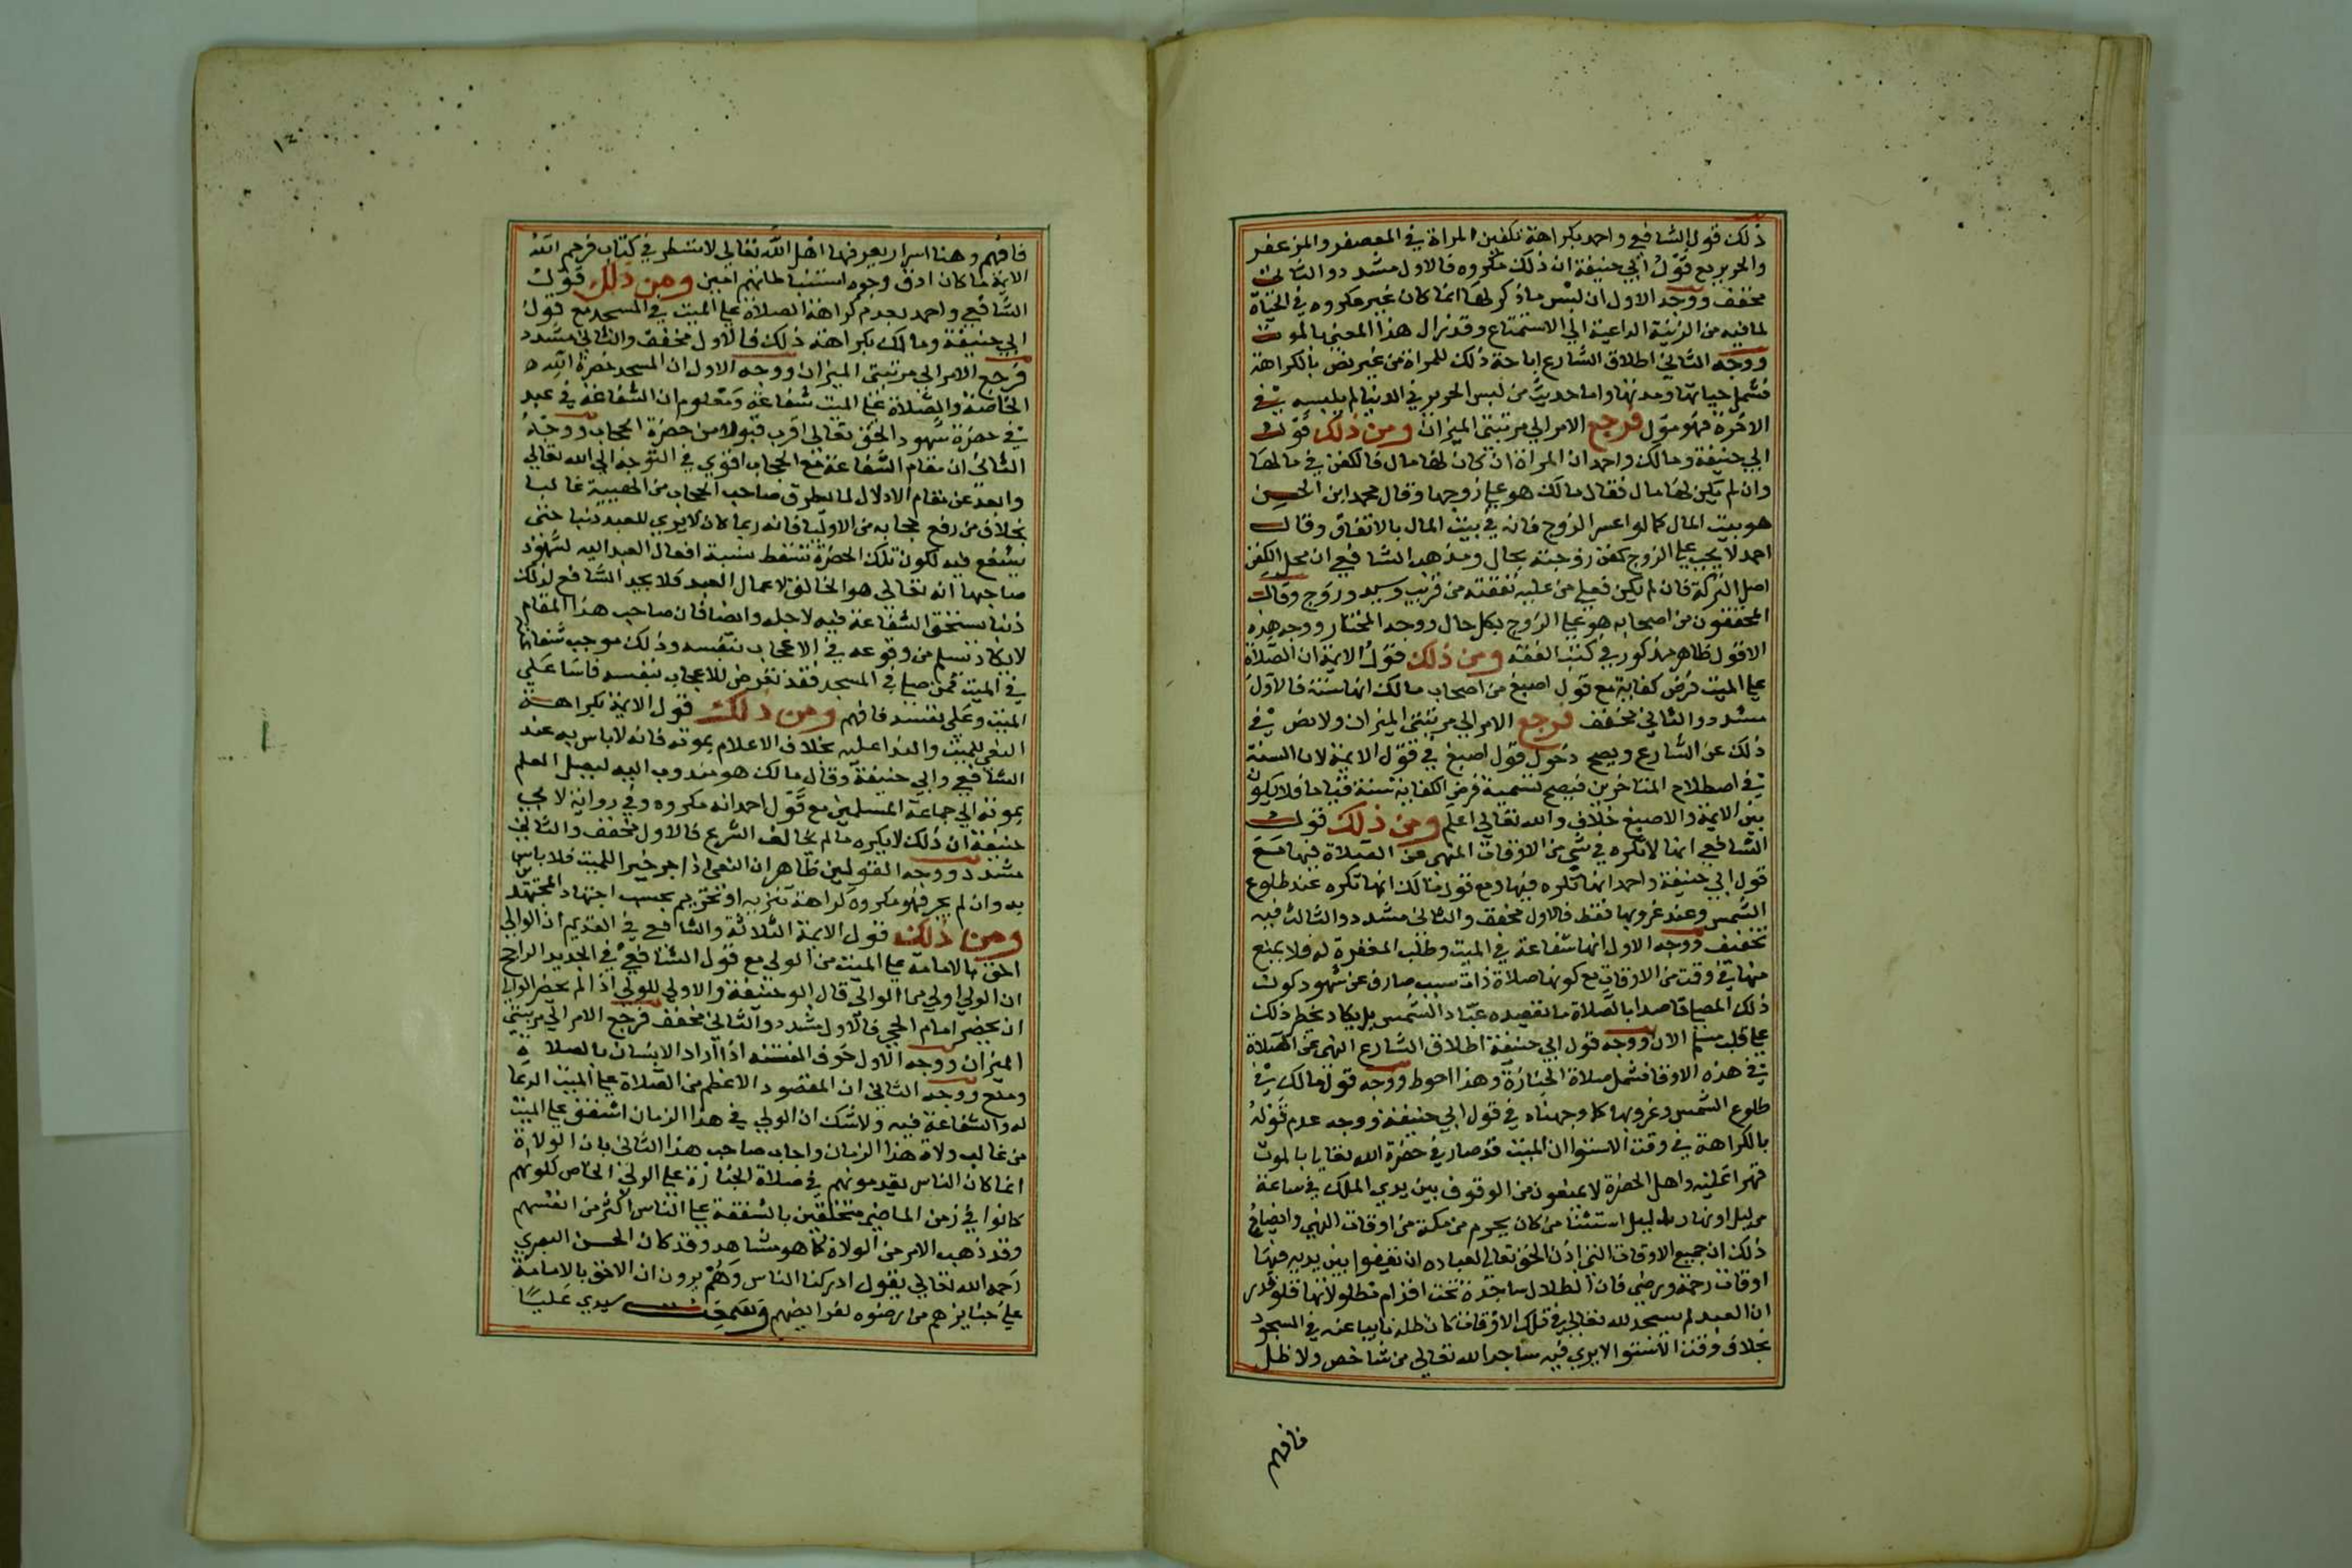 ذلك قول الشافعي واحمد بكراهة تكفين المراة في المعصفر والمزعفر
والحرير مع قول ابي حنيفة ان ذلك مكروه فالاول مشدد والثاني
مخفف ووجه الاول ان لبس ماذكر لها انما كان غير مكروه في الحياة
لما فيه من الزينة الداعية الي الاستمتاع وقد زال هذا المعني بالموت
ووجه الثاني اطلاق الشارع اباحة ذلك للمراة من غير نص بالكراهة
فشمل حياتها وموتها واما حديث من لبس الحرير في الدنيا لم يلبسه في
الاخرة فهو مؤل فرجع الامر الي مرتبتي الميزان ومن ذلك قول
ابي حنيفة ومالك واحمد ان المراة ان كان لها مال فالكفن في مالها
وان لم يكن لها مال فقال مالك هو علي زوجها وقال محمد ابن الحسن
هو بيت المال كما لو اعسر الزوج فانه في بيت المال بالاتفاق وقال
احمد لا يجب علي الزوج كفن زوجته بحال ومذهب الشافعي ان محل الكفن
اصل التركة فان لم يكن فعلي من عليه نفقته من قريب وسيد وزوج وقال
المحققون من اصحابه هو علي الزوج بكل حال ووجه المختار ووجه هذه
الاقول ظاهر مذكور في كتب الفقه ومن ذلك قول الايمة ان الصلاة
علي الميت فرض كفاية مع قول اصبغ من اصحاب مالك انها سنة فالاول
مشدد والثاني مخفف فرجع الامر الي مرتبتي الميزان ولا نص في
ذلك عن الشارع ويصح دخول قول اصبغ في قول الايمة لان السنة
في اصطلاح المتاخرين فيصح تسمية فرض الكفاية سنة فلا يكون
بين الايمة والاصبغ خلاف والله تعالي اعلم ومن ذلك قول
الشافعي انها لا تكره في شي من الاوقات المنهي عن الصلاة فيها مع
قول ابي حنيفة واحمد انها تكره فيها ومع قول مالك انها تكره عند طلوع
الشمس وعند غروبها فقط فالاول مخفف والثاني مشدد والثالث فيه
تخفيف ووجه الاول انها شفاعة في الميت وطلب المغفرة له فلا يمنع
منها في وقت من الاوقات مع كونها صلاة ذات سبب صارف عن شهود كون
ذلك المصلي قاصدا بالصلاة ما يقصده عباد الشمس بل يكاد يخطر ذلك
علي قلب مسلم الان ووجه قول ابي حنيفة اطلاق الشارع النهي عن الصلاة
في هذه الاوقات فشمل صلاة الجنازة وهذا احوط ووجه قول مالك في
طلوع الشمس وغروبها كما وجهناه في قول ابي حنيفة ووجه عدم قوله
بالكراهة في وقت الاستوا ان الميت قد صار في حضرة الله تعالي بالموت
قهرا عليه واهل الحضرة لا يمنعون من الوقوف بين يدي الملك في ساعة
من ليل او نهار بدليل استثنا من كان بحرم من مكة من اوقات النهي وايضاح
ذلك ان جميع الاوقات التي اذن الحق تعالي لعباده ان يقفوا بين يديه فيها
اوقات رحمة ورضي فان الظلال ساجدة تحت اقدام مظلولاتها فلو قدر
ان العبد لم يسجد لله تعالي في تلك الاوقات كان ظله نايبا عنه في السجود
بخلاف وقت الاستوا لا يري فيه ساجد الله تعالي من شاخص ولا ظل
فافهم
١٤٠
فافهم وهنا اسرار يعرفها اهل الله تعالي لا تسطر في كتاب فرحم الله
الايمة ما كان ادق وجوه استنباطاتهم امين ومن ذلك قول
الشافعي واحمد بعدم كراهة الصلاة علي الميت في المسجد مع قول
ابي حنيفة ومالك بكراهة ذلك فالاول مخفف والثاني مشدد
فرجع الامر الي مرتبتي الميزان ووجه الاول ان المسجد حضرة الله
الخاصة والصلاة علي الميت شفاعة ومعلوم ان الشفاعة في عبد
في حضرة شهود الحق تعالي اقرب قبولا من حضرة الحجاب ووجه
الثاني ان مقام الشفاعة مع الحجاب اقوي في التوجه الي الله تعالي
وابعد عن مقام الادلال لما يطرق صاحب الحجاب من الهيبة غالبا
بخلاف من رفع حجابه من الاوليا فانه ربما كان لا يري للعبد ذنبا حتي
يشفع فيه لكون تلك الحضرة تسقط نسبة افعال العبد اليه لشهود
صاحبها انه تعالي هو الخالق لاعمال العبد فلا يجد الشافع لذلك
ذنبا يستحق الشفاعة فيه لاجله وايضا فان صاحب هذا المقام
لا يكاد يسلم من وقوعه في الاعجاب بنفسه وذلك موجب
في الميت فمن صلي في المسجد فقد تعرض للاعجاب بنفسه فاسا علي
الميت وعلي نفسه فافهم ومن ذلك قول الايمة بكراهة
النعي للميت والندا عليه بخلاف الاعلام بموته فانه لا باس به عند
الشافعي وابي حنيفة وقال مالك هو مندوب اليه ليصل العلم
بموته الي جماعة المسلمين مع قول احمد انه مكروه وفي رواية لابي
حنيفة ان ذلك لا يكره ما لم يخالف الشرع فالاول مخفف والثاني
مشدد ووجه القولين ظاهر ان النعي اذا جر خيرا للميت فلا باس
به وان لم يجر فهو مكروه كراهة تنزيه او تحريم بحسب اجتهاد المجتهد
ومن ذلك قول الايمة الثلاثة والشافعي في القديم ان الوالي
احق بالامامة علي الميت من الولي مع قول الشافعي في الجديد الراجح
ان الولي اولي من الوالي قال ابو حنيفة والاولي للولي اذا لم يحضر الوالي
ان يحضر امام الحي فالاول مشدد والثاني مخفف فرجع الامر الي مرتبتي
الميزان ووجه الاول خوف الفتنة اذا اراد الانسان بالصلاة
ومنع ووجه الثاني ان المقصود الاعظم من الصلاة علي الميت الدعا
له والشفاعة فيه ولا شك ان الولي في هذا الزمان اشفق علي الميت
من غالب ولاة هذا الزمان واجاب صاحب هذا الثاني بان الولاة
انما كان الناس يقدمونهم في صلاة الجنازة علي الولي الخاص لكونهم
كانوا في زمن الماضي متخلقين بالشفقة علي الناس اكثر من انفسهم
وقد ذهب الامر من الولاة كما هو مشاهد وقد كان الحسن البصري
رحمه الله تعالي يقول ادركنا الناس وهم يرون ان الاحق بالامامة
علي جنايزهم من رضوه لفرايضهم وسمعت سيدي عليا